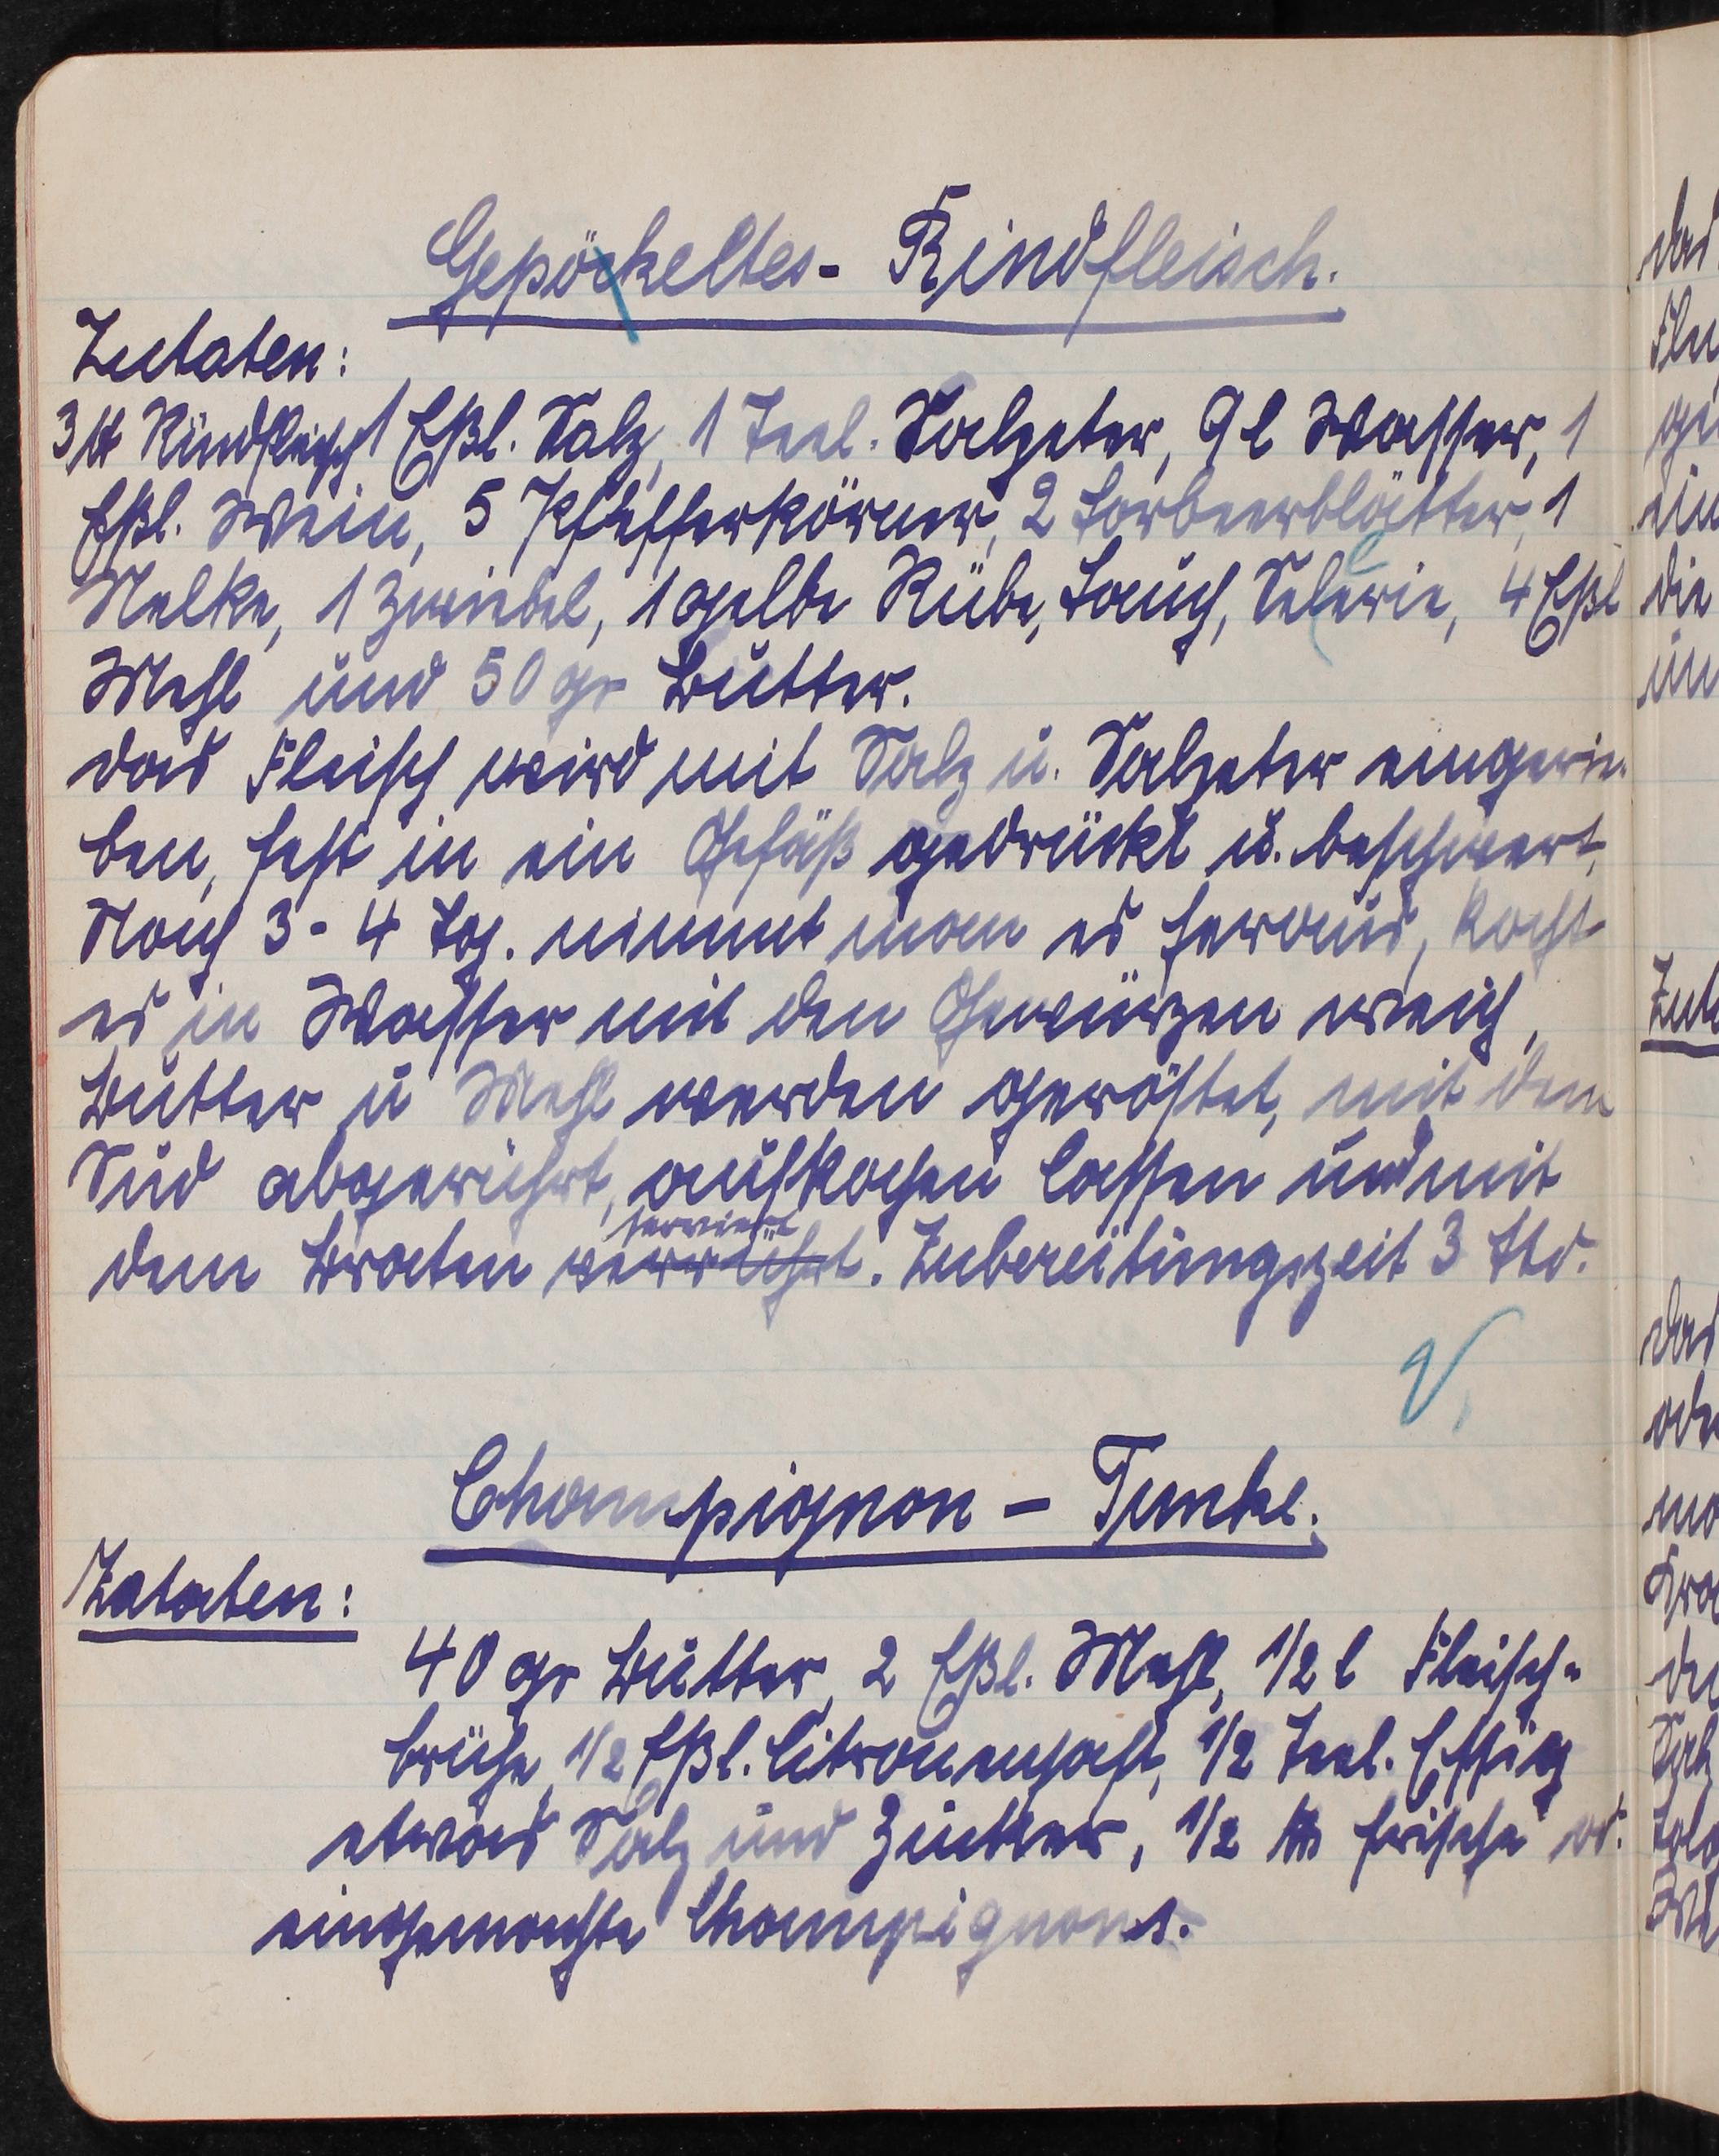 Gepöckeltes- Rindfleisch.
Zutaten:
3 ℔ Rindfleisch 1 Eßl. Salz, 1 Teel. Salpeter, 9 l Wasser, 1
Eßl. Wein, 5 Pfefferkörner, 2 Lorbeerblätter, 1
Nelke, 1 Zwiebel, 1 gelbe Rübe, Lauch, Selerie, 4 Eßl
Mehl und 50 gr Butter.
das Fleisch wird mit Salz u. Salpeter eingerie-
ben, fest in ein Gefäß gedrückt u. beschwert,
Nach 3 - 4 Tag. nimmt man es heraus, kocht
es in Wasser mit den Gewürzen weich,
Butter u Mehl werden geröstet, mit dem
Sud abgerührt, aufkochen lassen und mit
serviert
dem Braten verrührt. Zubereitungszeit 3 Std.
V
Champignon - Tunke.
Zutaten:
40 gr Butter, 2 Eßl. Mehl, 1/2 l Fleisch-
brühe, 1/2 Eßl. Citronensaft, 1/2 Teel. Essig
etwas Salz und Zucker, 1/2 ℔ frische od.
eingemachte Champignons.